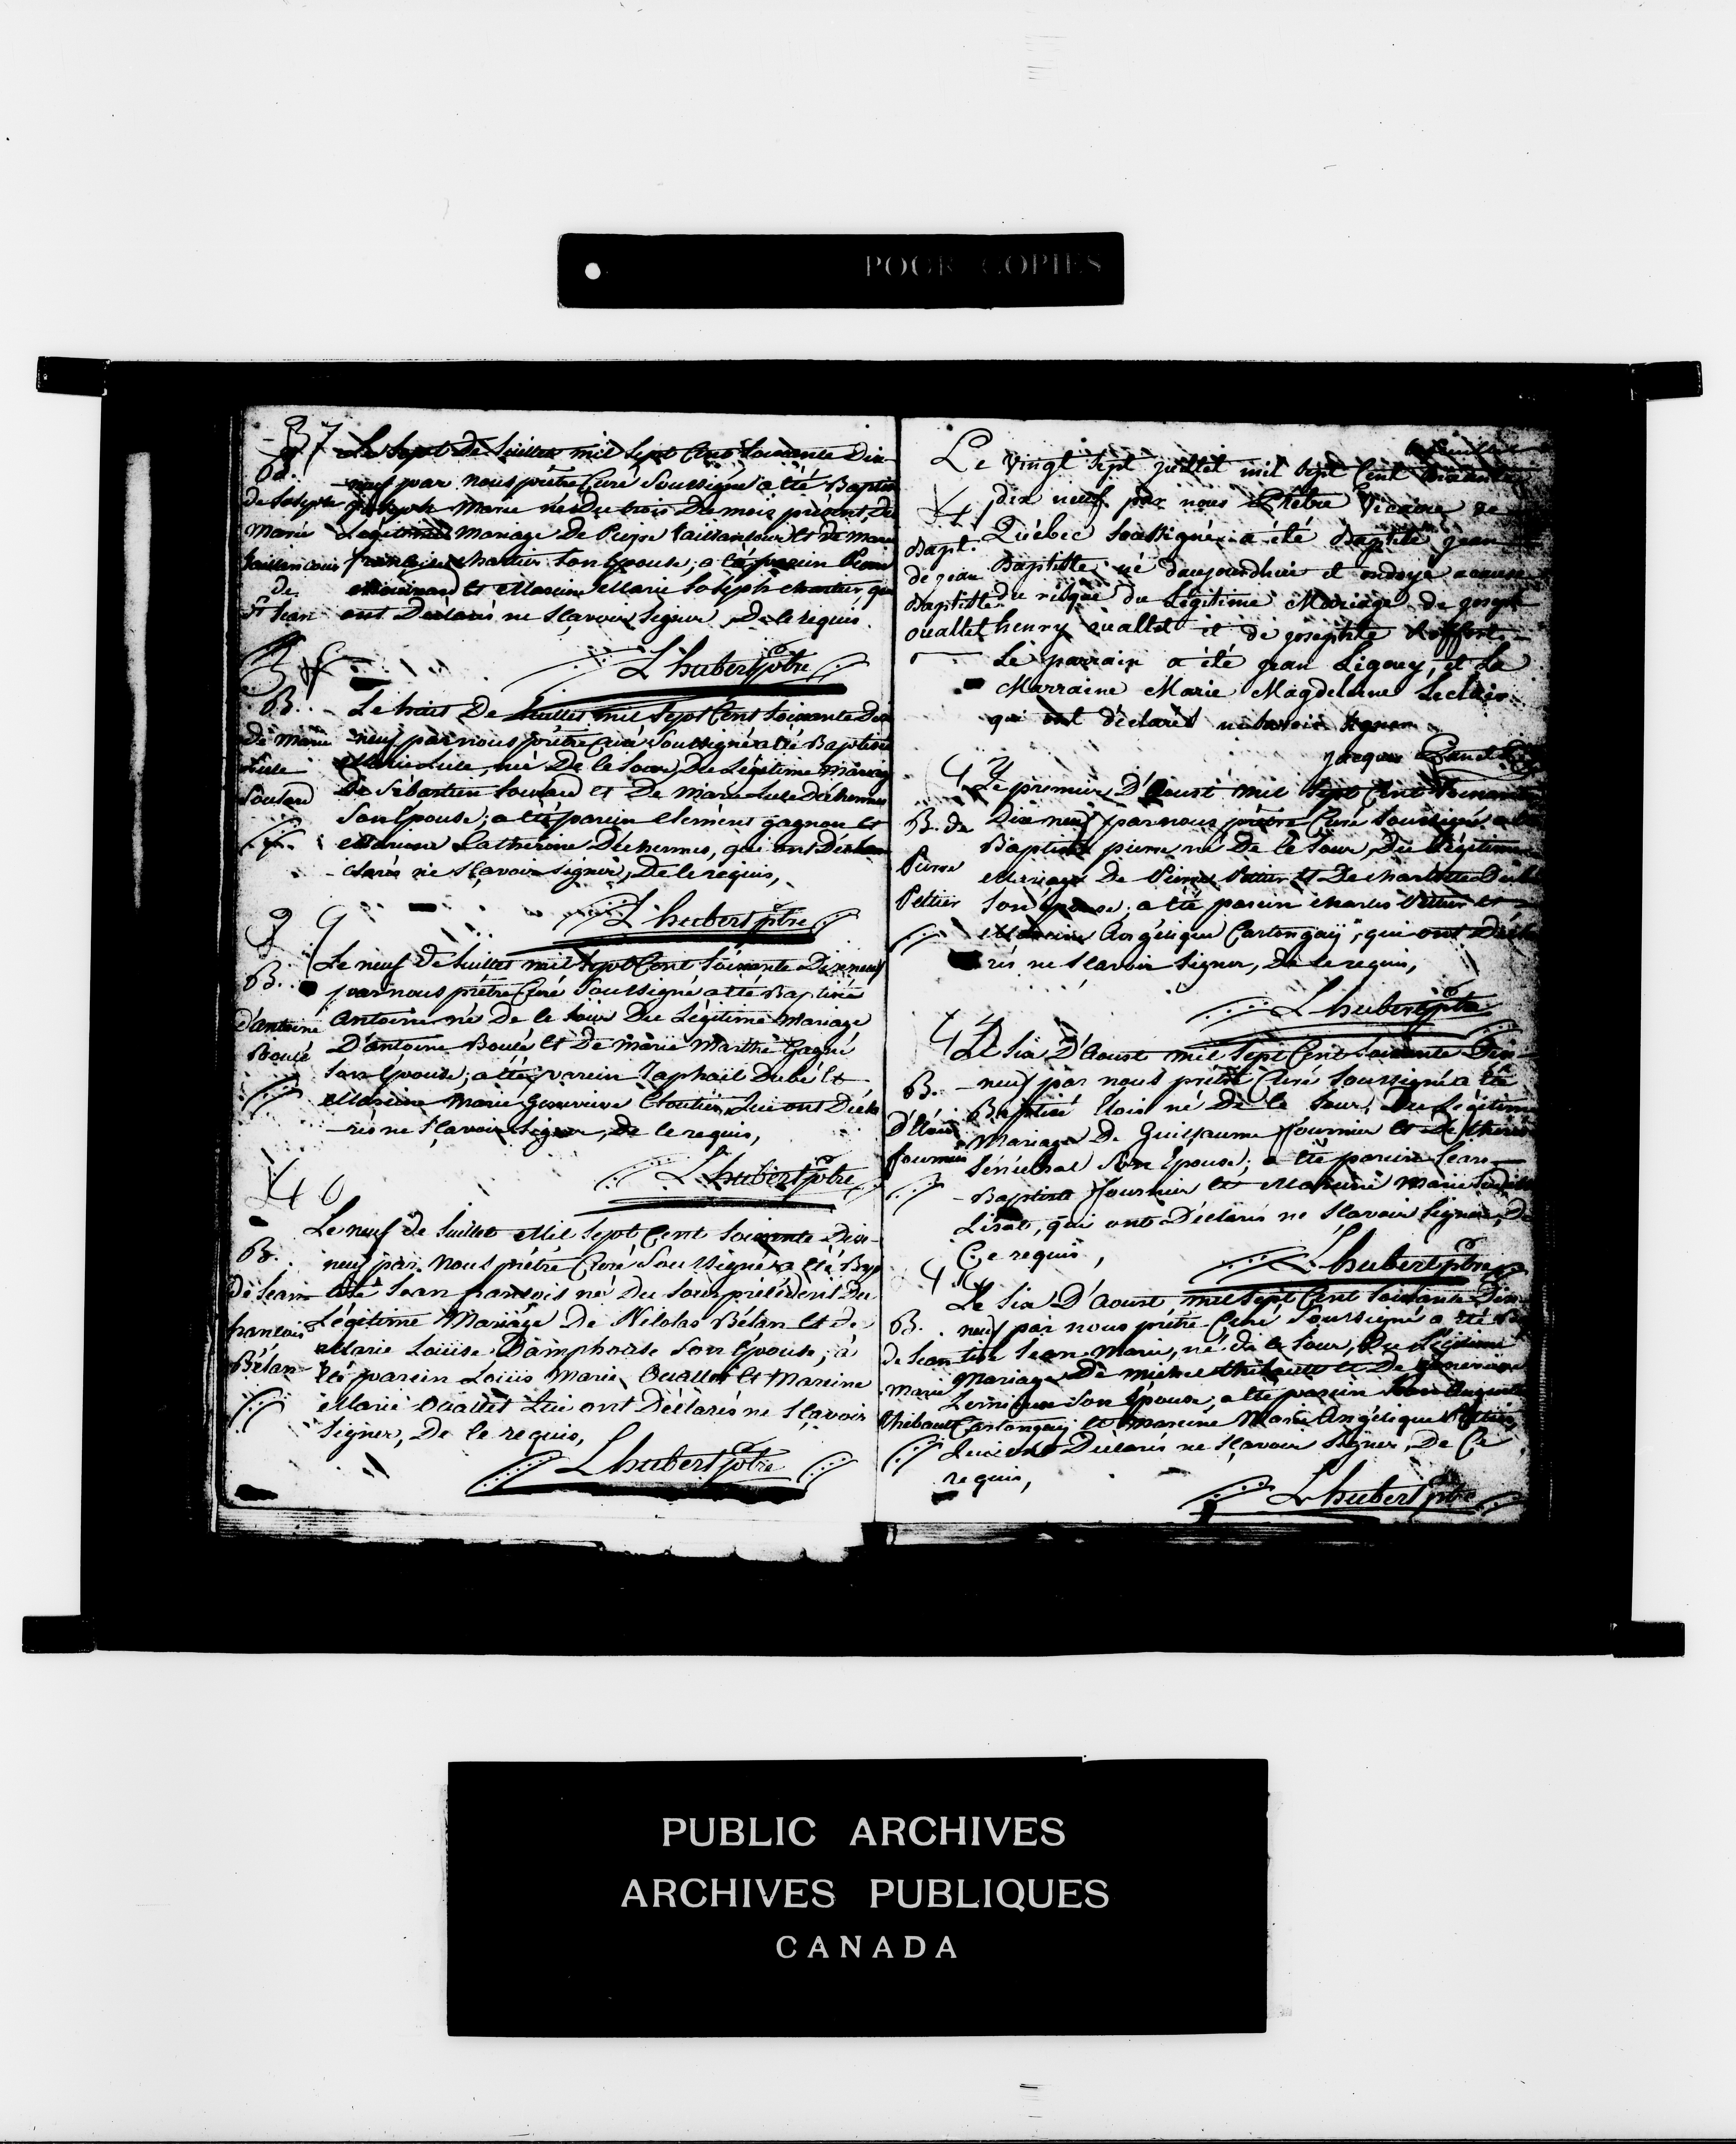 POOR COPIES
37
Le Sept De Juillet mil Sept Cent Soixante Dix
B.
neuf par nous prêtre Curé Soussigné a été Baptisé
de Joseph Joseph Marie né Du trois Du mois présent, Du
Marie Légitime Mariage De Pierre et De Marie
françoise chartier Son Epouse, a été parein Pierre
de et Mareine Marie Joseph chartier, qui
St Jean ont Déclarés ne Sçavoir Signer, De le requis
L'hubert ptre
38
B. Le huit De Juillet mil Sept Cent Soixante Dix
de Marie neuf par nous prêtre Curé Soussigné a été Baptisée
Luce Marie Luce, née De le Jour Du Légitime Mariage
Soulard De Sébastien Soulard et De Marie Luce Déchennes
Son Epouse; a été parein Clément gagnon et
Mareine Catherine Déchennes, qui ont Dé
clarés ne Sçavoir Signer, De le requis,
L'hubert ptre
39
Le neuf De Juillet mil Sept Cent Soixante Dix neuf
B. par nous prêtre Curé Soussigné a été Baptisé
d'antoine Antoine né De le Jour Du Légitime Mariage
Boulé D'antoine Boulé et De Marie Marthe Gagné
Son Epouse; a été parein Raphaël Dubé et
Mareine Marie Genevieve Cloutier Qui ont Décla
rés ne Sçavoir Signer, De le requis,
L'hubert ptre
40
Le neuf de Juillet Mil Sept Cent Soixante Dix
B. neuf par nous prêtre Curé Soussigné a été Bap
de Jean tisé Jean françois né du Jour précédent Du
françois Légitime Mariage De Nicolas Bélan et de
Bélan Marie Louise Damphouse Son Epouse; a
été parein Louis Marie Ouallet et Mareine
Marie Ouallet Qui ont Déclarés ne Sçavoir
Signer, De le requis,
L'hubert ptre
Le vingt Sept juillet mil Sept Cent Soixante
41 dix neuf par nous Prêtre Vicaire de
Bapt. Québec Soussigné a été Baptisé jean
de jean Baptiste né daujourdhui et ondoyé acause
Baptiste du risque du Légitime Mariage de joseph
ouallet henry ouallet et de josephte
Le parrain a été jean Ligney, et La
Marraine Marie Magdeleine Leclair
qui ont déclarés ne Savoir Signer
jacques
42
Le premier D'Aoust mil Sept Cent Soixante
B. de Dix neuf par nous prêtre Curé Soussigné a été
Pierre Baptisé pierre né De le Jour, Du Légitime
Mariage De Pierre Peltier et De charlotte
Peltier Son Epouse, a été parein charles Peltier et
Mareine Angélique Castonguaÿ, qui ont Décla
rés ne Sçavoir Signer, De le requis,
L'hubert ptre
43
Le Six D'Aoust mil Sept Cent Soixante Dix
B. neuf par nous prêtre Curé Soussigné a été
D'Eloi Baptisé Elois né De le Jour, Du Légitime
fournier Mariage De Guillaume fournier et De
Sénéchal Son Epouse; a été parein Jean
Baptiste fournier et Mareine Marie
Lizot, qui ont Déclarés ne Sçavoir Signer, De
Ce requis,
L'hubert ptre
44
Le Six D'Aoust mil Sept Cent Soixante Dix
B. neuf par nous prêtre Curé Soussigné a été Bap
de Jean tisé Jean Marie, né de le Jour, Du Légitime
Marie Mariage De Michel thibault et De Genevieve
Lemieux Son Epouse, a été parein Jean
thibault Castonguaÿ et Mareine Marie Angélique Peltier,
Qui ont Déclarés ne Sçavoir Signer, De Ce
requis,
L'hubert ptre
PUBLIC ARCHIVES
ARCHIVES PUBLIQUES
CANADA